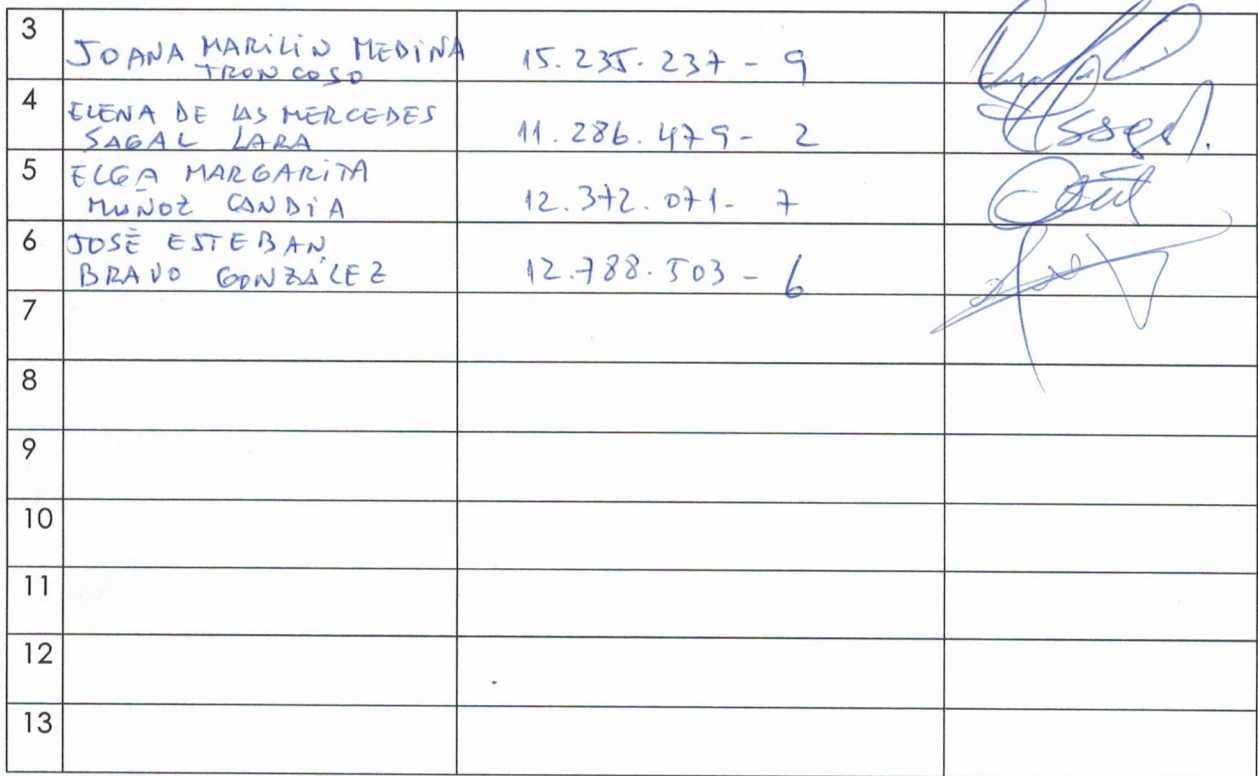 3
JOANA MARILIN MEDINA
TRONCOSO
15.235.237-9
4
ELENA DE LAS MERCEDES
SAGAL LARA
11.286.479-2
5
ELGA MARGARITA
MUÑOZ CANDIA
12.372.071-7
6
JOSÉ ESTEBAN
BRAVO GONZÁLEZ
12.788.503-6
7
8
9
10
11
12
13